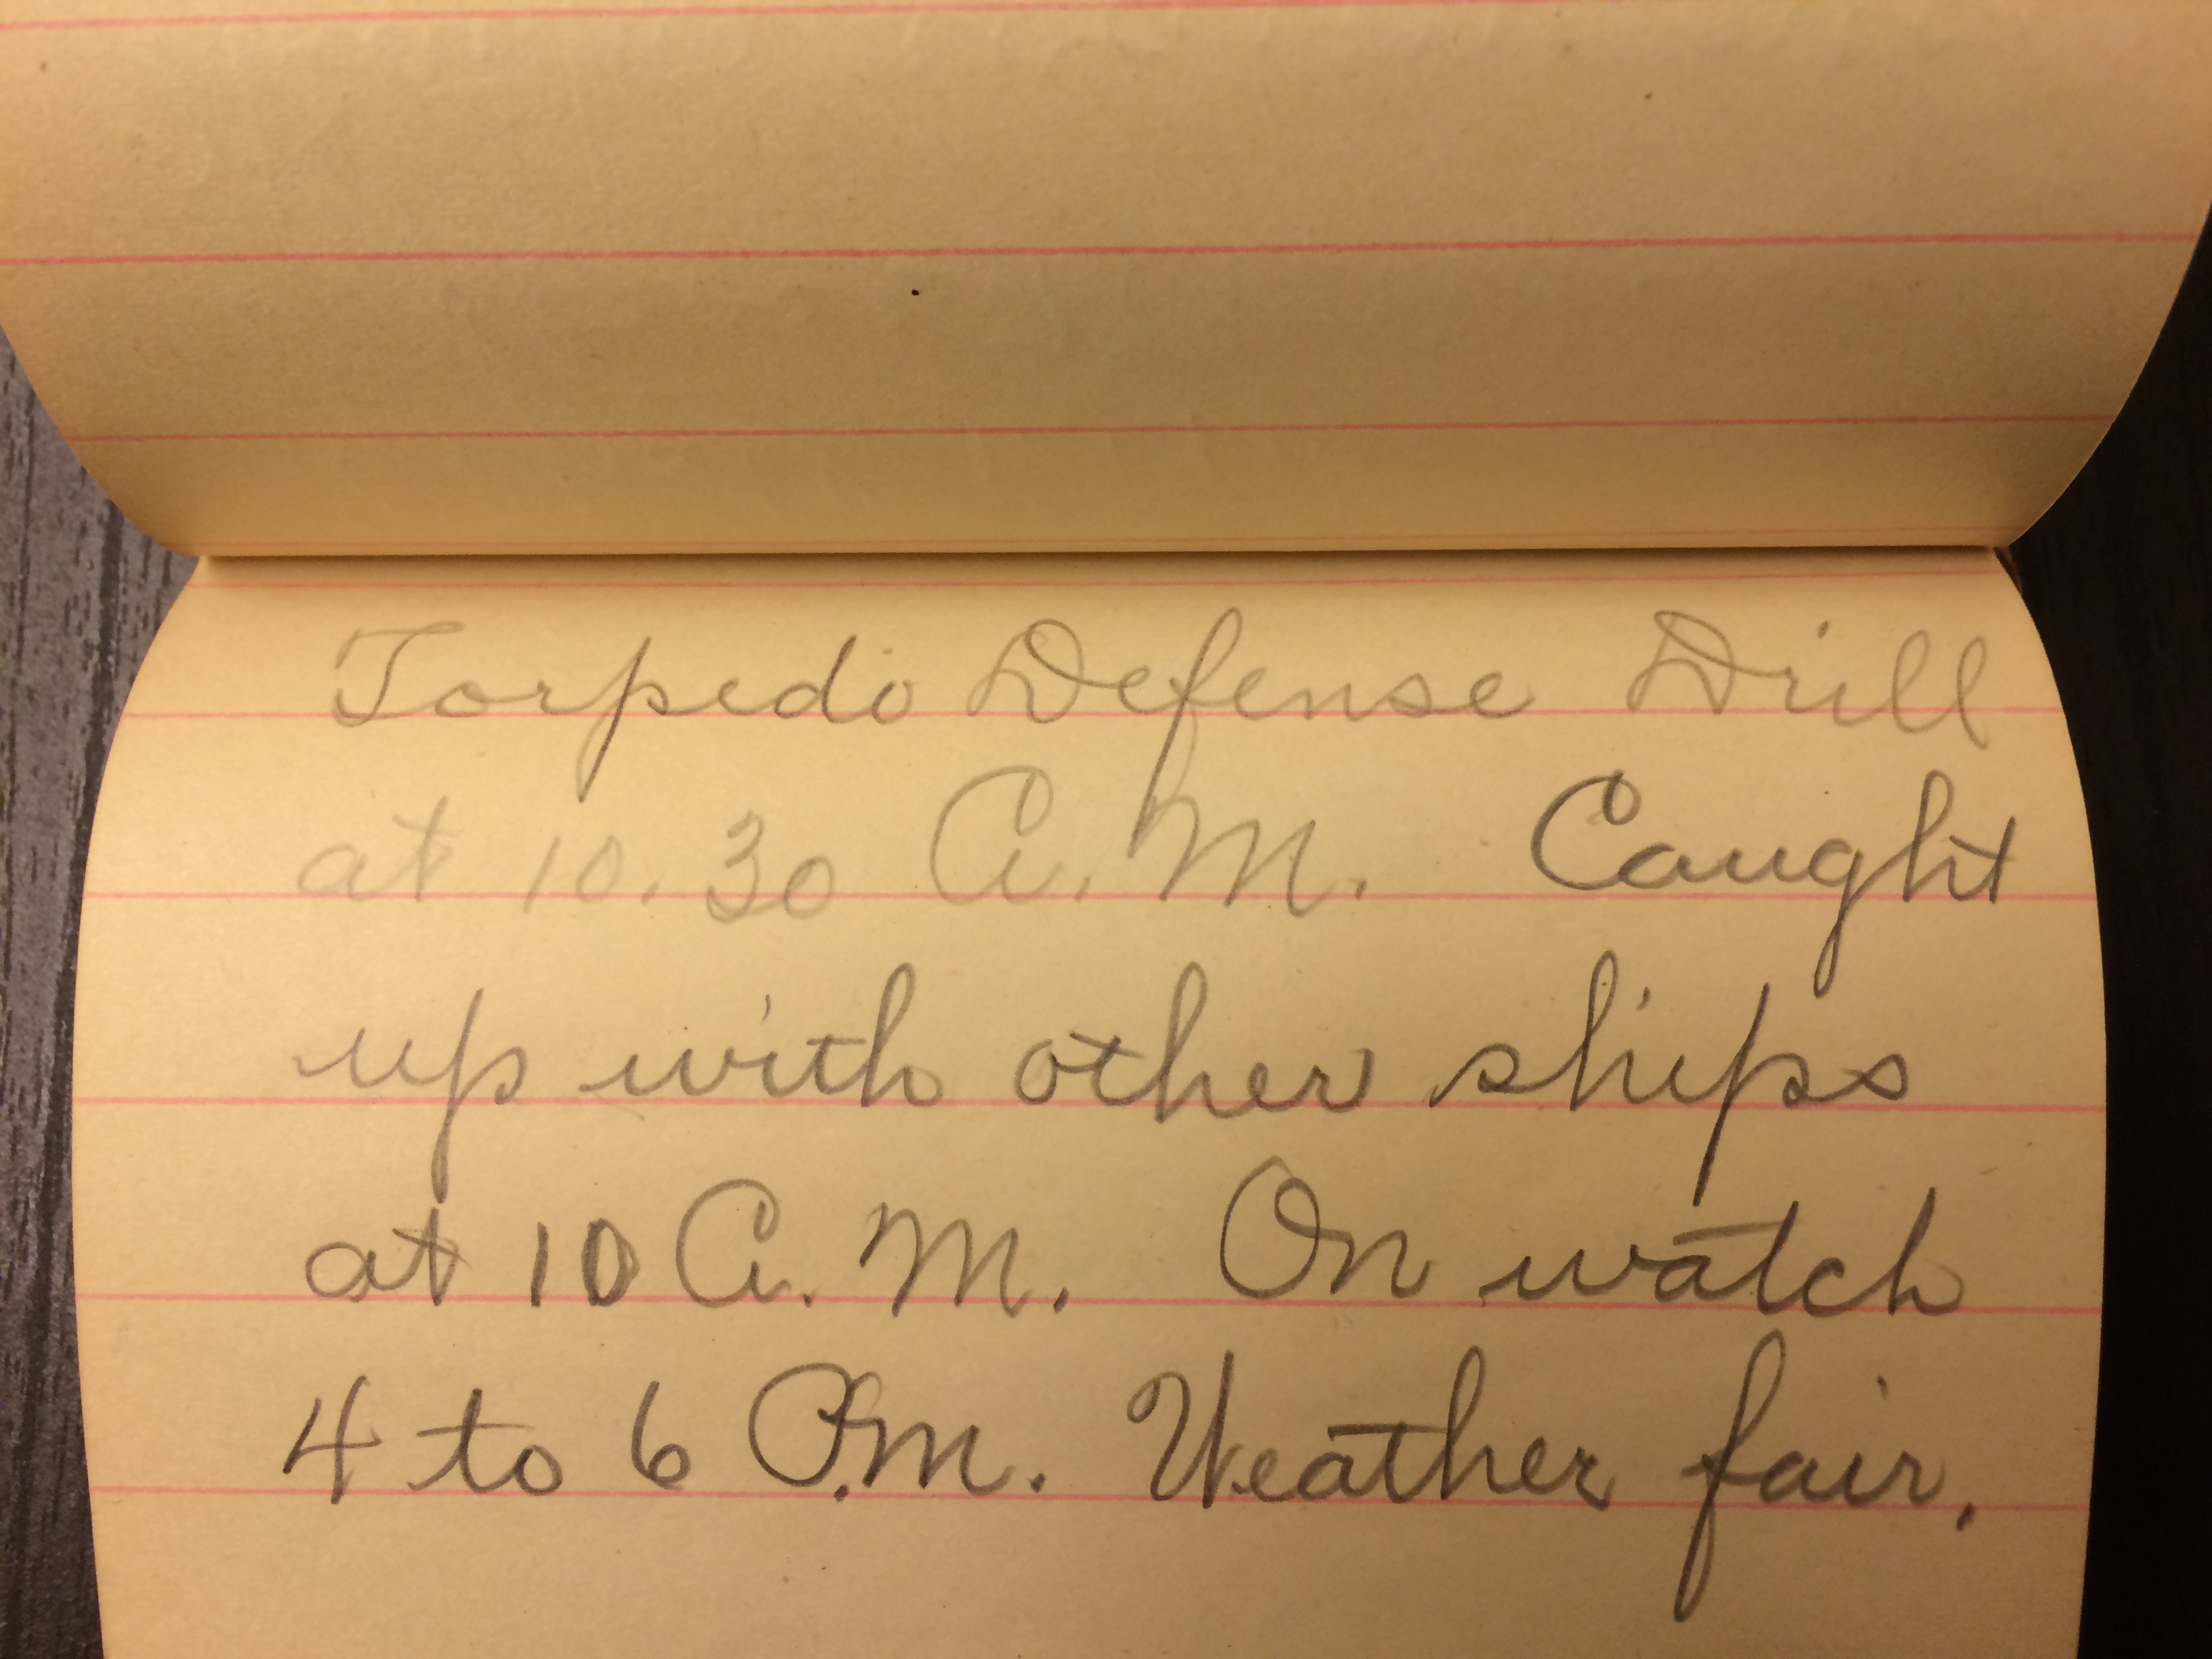 Torpedo Defense Drill
at 10.30 A.M. Caught
up with other ships
at 10 A.M. On watch
4 to 6 P.M. Weather fair.